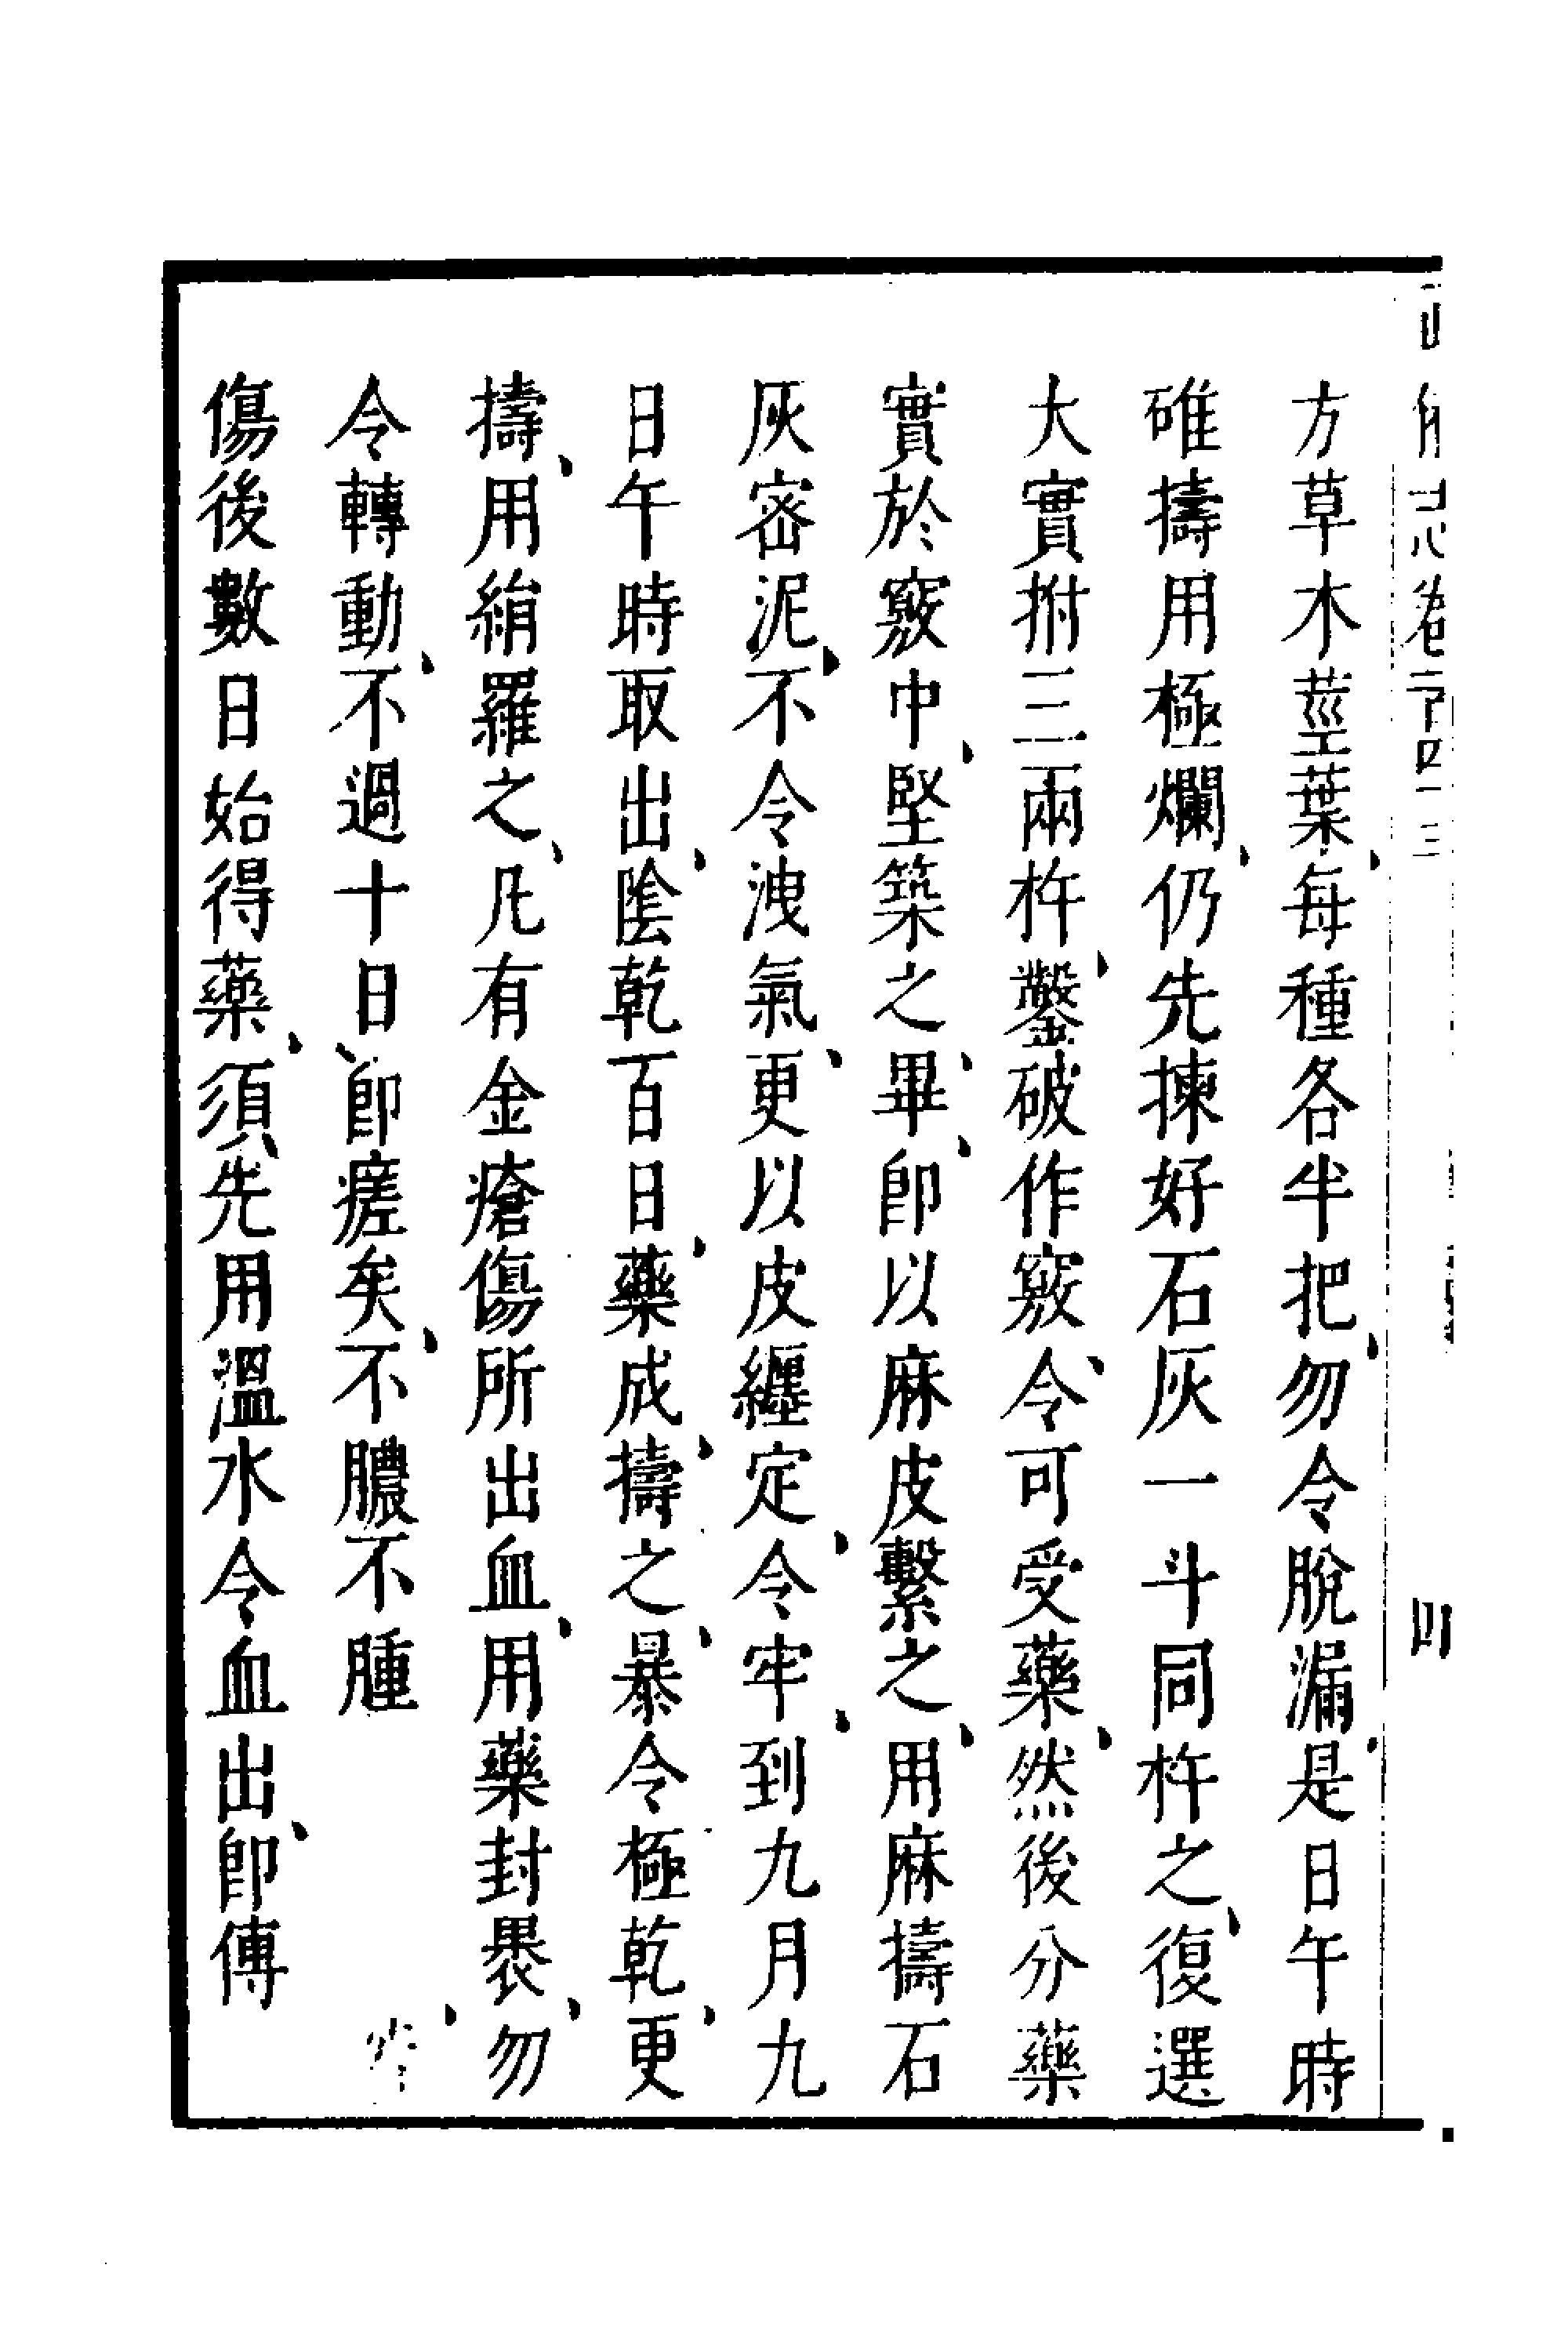 志卷 四
方草木莖葉每種各半把勿令脫漏是日午時
碓擣用極爛仍先揀好石灰一斗同杵之復選
大實拊三兩杵鑿破作竅令可受藥然後分藥
實於竅中堅築之畢卽以麻皮繫之用麻擣石
灰密泥不令洩氣更以皮纏定令牢到九月九
日午時取出陰乾百日藥成擣之暴令極乾更
擣用絹羅之凡有金瘡傷所出血用藥封褁勿
令轉動不過十日卽瘥矣不膿不腫
傷後數日始得藥須先用溫水令血出卽傅